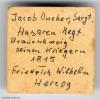 Jacob Ducker, Sergt.
Husaren Regt.
Braunschweig
seinen Kriegern
1815
Friedrich Wilhelm
Herzog